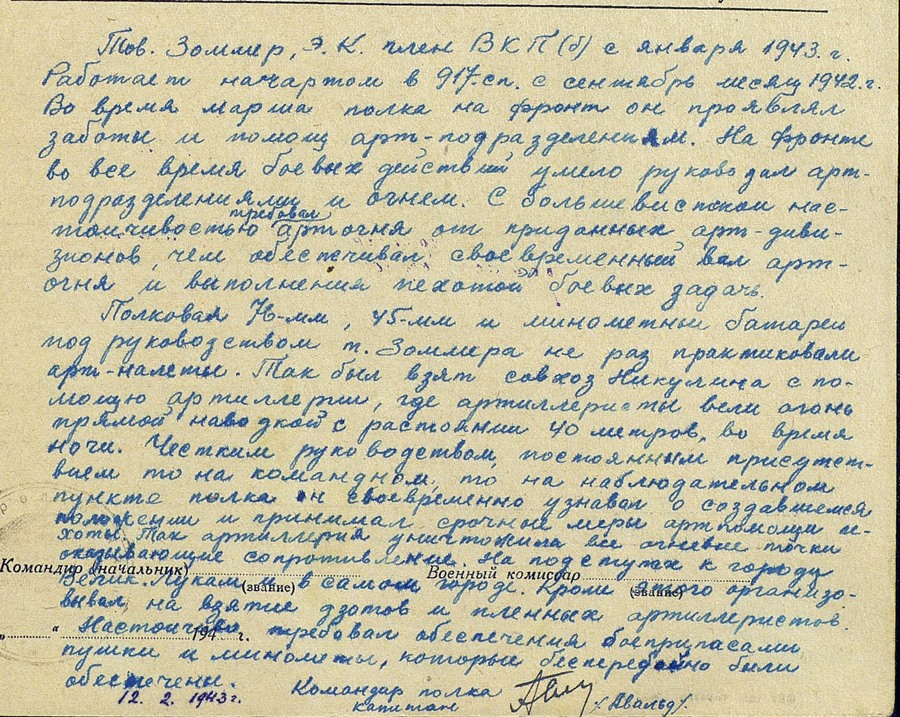 Тов. Зоммер, Э. К. член ВКП(б) с января 1943. г.
Работает начартом в 917-сп. с сентябрь месяц 1942. г.
Во время марша полка на фронт он проявлял
заботы и помощ арт-подразделениям. На фронте
во все время боевых действий умело руководил арт-
подразделениями и огнем. С большевистской нас-
тойчивостью требовал артогня от приданных арт-диви-
зионов, чем обеспечивал своевременный вал арт-
огня и выполнения пехотой боевых задачь.
Полковая 76-мм, 45-мм и минометные батареи
под руководством т. Зоммера не раз практиковали
арт-налеты. Так был взят совхоз Никулина с по-
мощью артиллерии, где артиллеристы вели огонь
прямой наводкой с растоянии 40 метров, во время
ночи. Честким руководством, постоянным присутст-
вием то на командном, то на наблюдательном
пункте полка он своевременно узнавал о создавшемся
положении и принимал срочные меры артпомощи пе-
хоты. Так артиллерия уничтожила все огневые точки
оказывающие сопротивление. На подступах к городу
Командир (начальник) Военный комиссар
Велик. Лукам и в самом городе. Кроме этого организо-
(звание) (звание)
вывал на взятие дзотов и пленных артиллеристов.
„ “ 194 г.
Настойчиво требовал обеспечения боеприпасами
пушки и минометы, которые бесперебойно были
обеспечены.
12. 2. 1943г. Командир полка
капитан /Авальд/